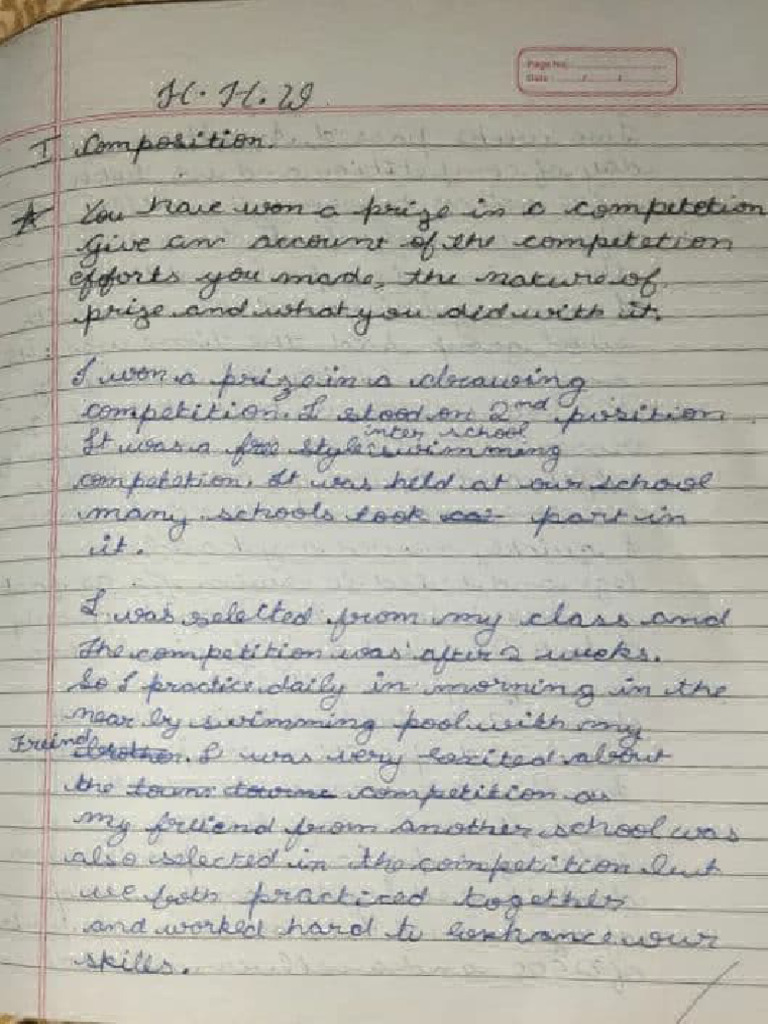 Page No.
Date / /
H. H. W
I Composition.
* You have won a prize in a competetion
Give an account of the competetion
efforts you made, the nature of
prize and what you did with it.
I won a prize in a drawing
competition. I stood on 2nd position
inter school
It was a free style swimming
competetion. It was held at our school
many schools took part in
it.
I was selected from my class and
the competition was after 2 weeks.
So I practice daily in morning in the
near by swimming pool with my
Freind brother. I was very excited about
the competition as
my freiend from another school was
also selected in the competition but
we both practiced together
and worked hard to enhance our
skills.